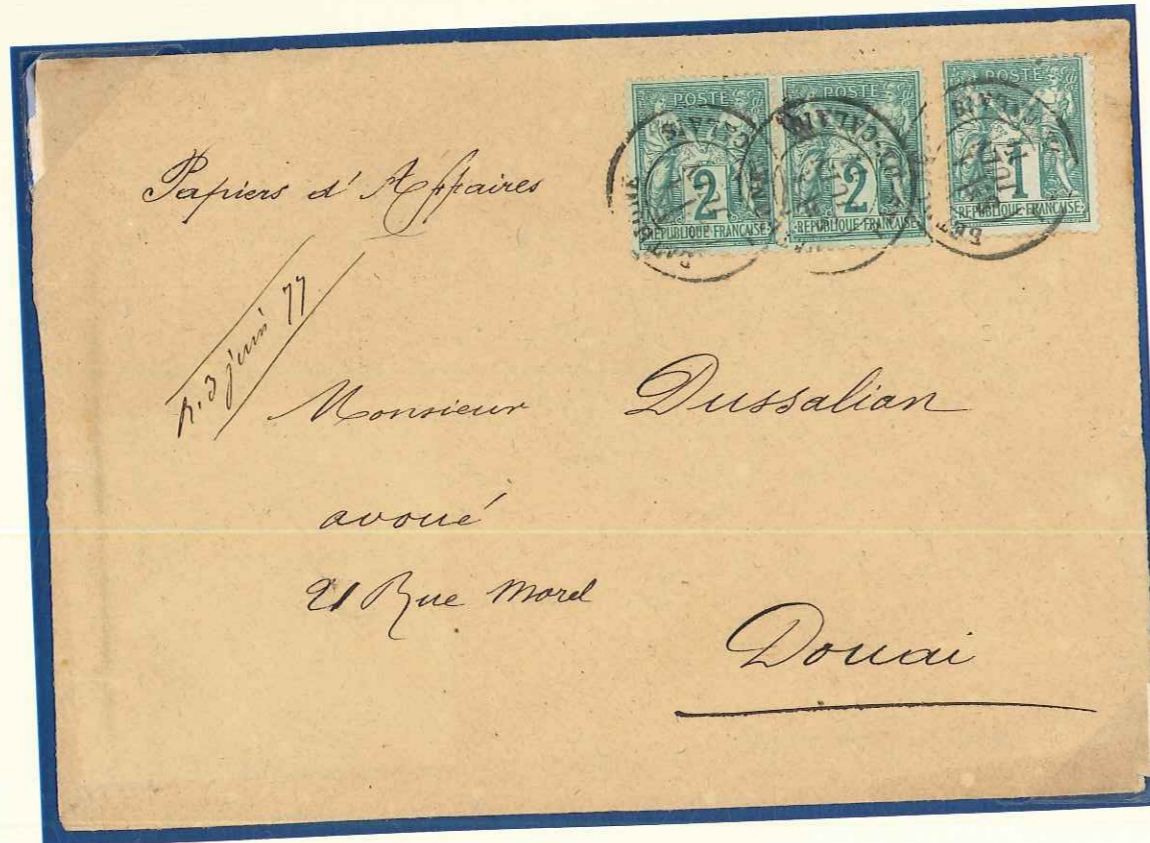 POSTE POSTE POSTE
2 2 1
REPUBLIQUE FRANÇAISE REPUBLIQUE FRANÇAISE REPUBLIQUE FRANÇAISE
Papiers d'Affaires
R. 3 juin 77
Monsieur Dussalian
avoué
21 Rue Morel
Douai